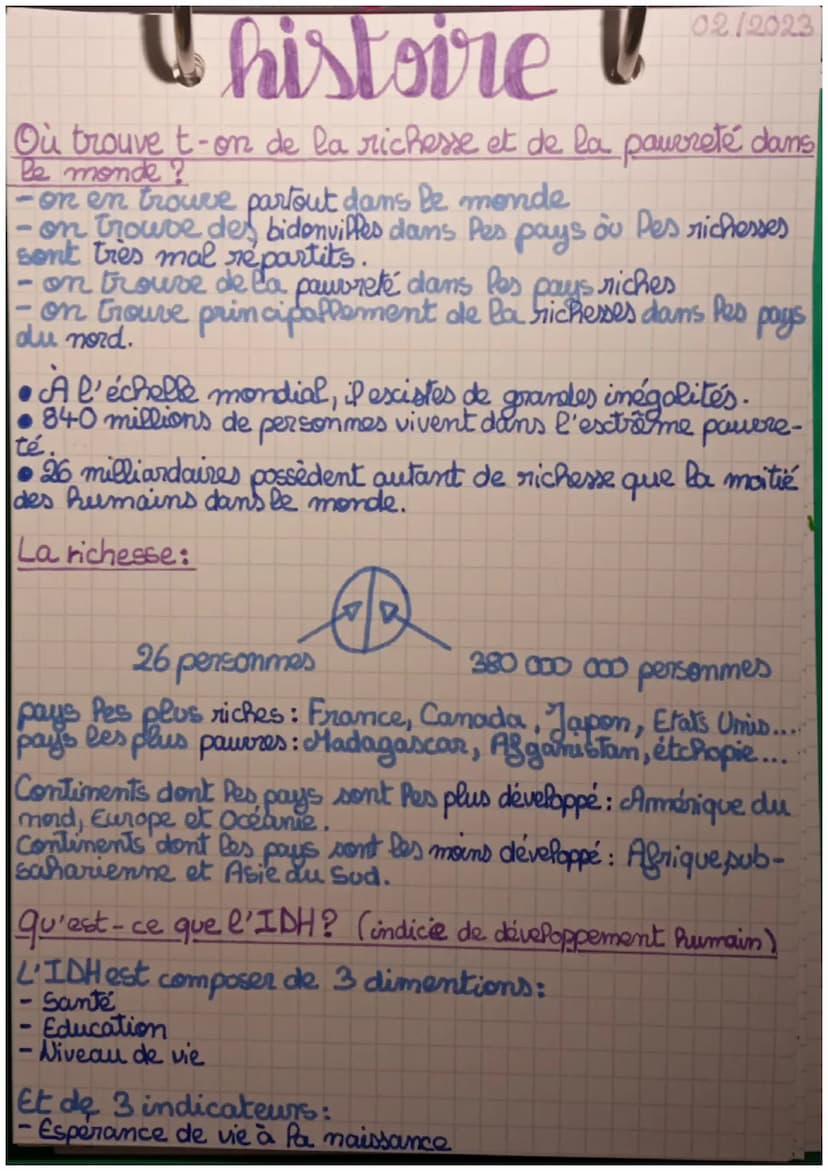 02/2023
histoire
Où trouve t-on de la richesse et de la pauvreté dans
le monde ?
- on en trouve partout dans le monde
- on trouve des bidonvilles dans les pays où les richesses
sont très mal répartits.
- on trouve de la pauvreté dans les pays riches
- on trouve principallement de la richesses dans les pays
du nord.
• À l'échelle mondial, il escistes de grandes inégalités.
• 840 millions de personnes vivent dans l'esctrême pauvre-
té.
• 26 milliardaires possèdent autant de richesse que la moitié
des humains dans le monde.
La richesse :
26 personnes
380 000 000 personnes
pays les plus riches : France, Canada, Japon, Etats Unis...
pays les plus pauvres : Madagascar, Afganistan, étchopie...
Continents dont les pays sont les plus développé : Amérique du
nord, Europe et Océanie.
Continents dont les pays sont les moins développé : Afrique sub-
saharienne et Asie du Sud.
Qu'est-ce que l'IDH ? (indicie de développement humain)
L'IDH est composer de 3 dimentions :
- Santé
- Education
- Niveau de vie
Et de 3 indicateurs :
- Espérance de vie à la naissance